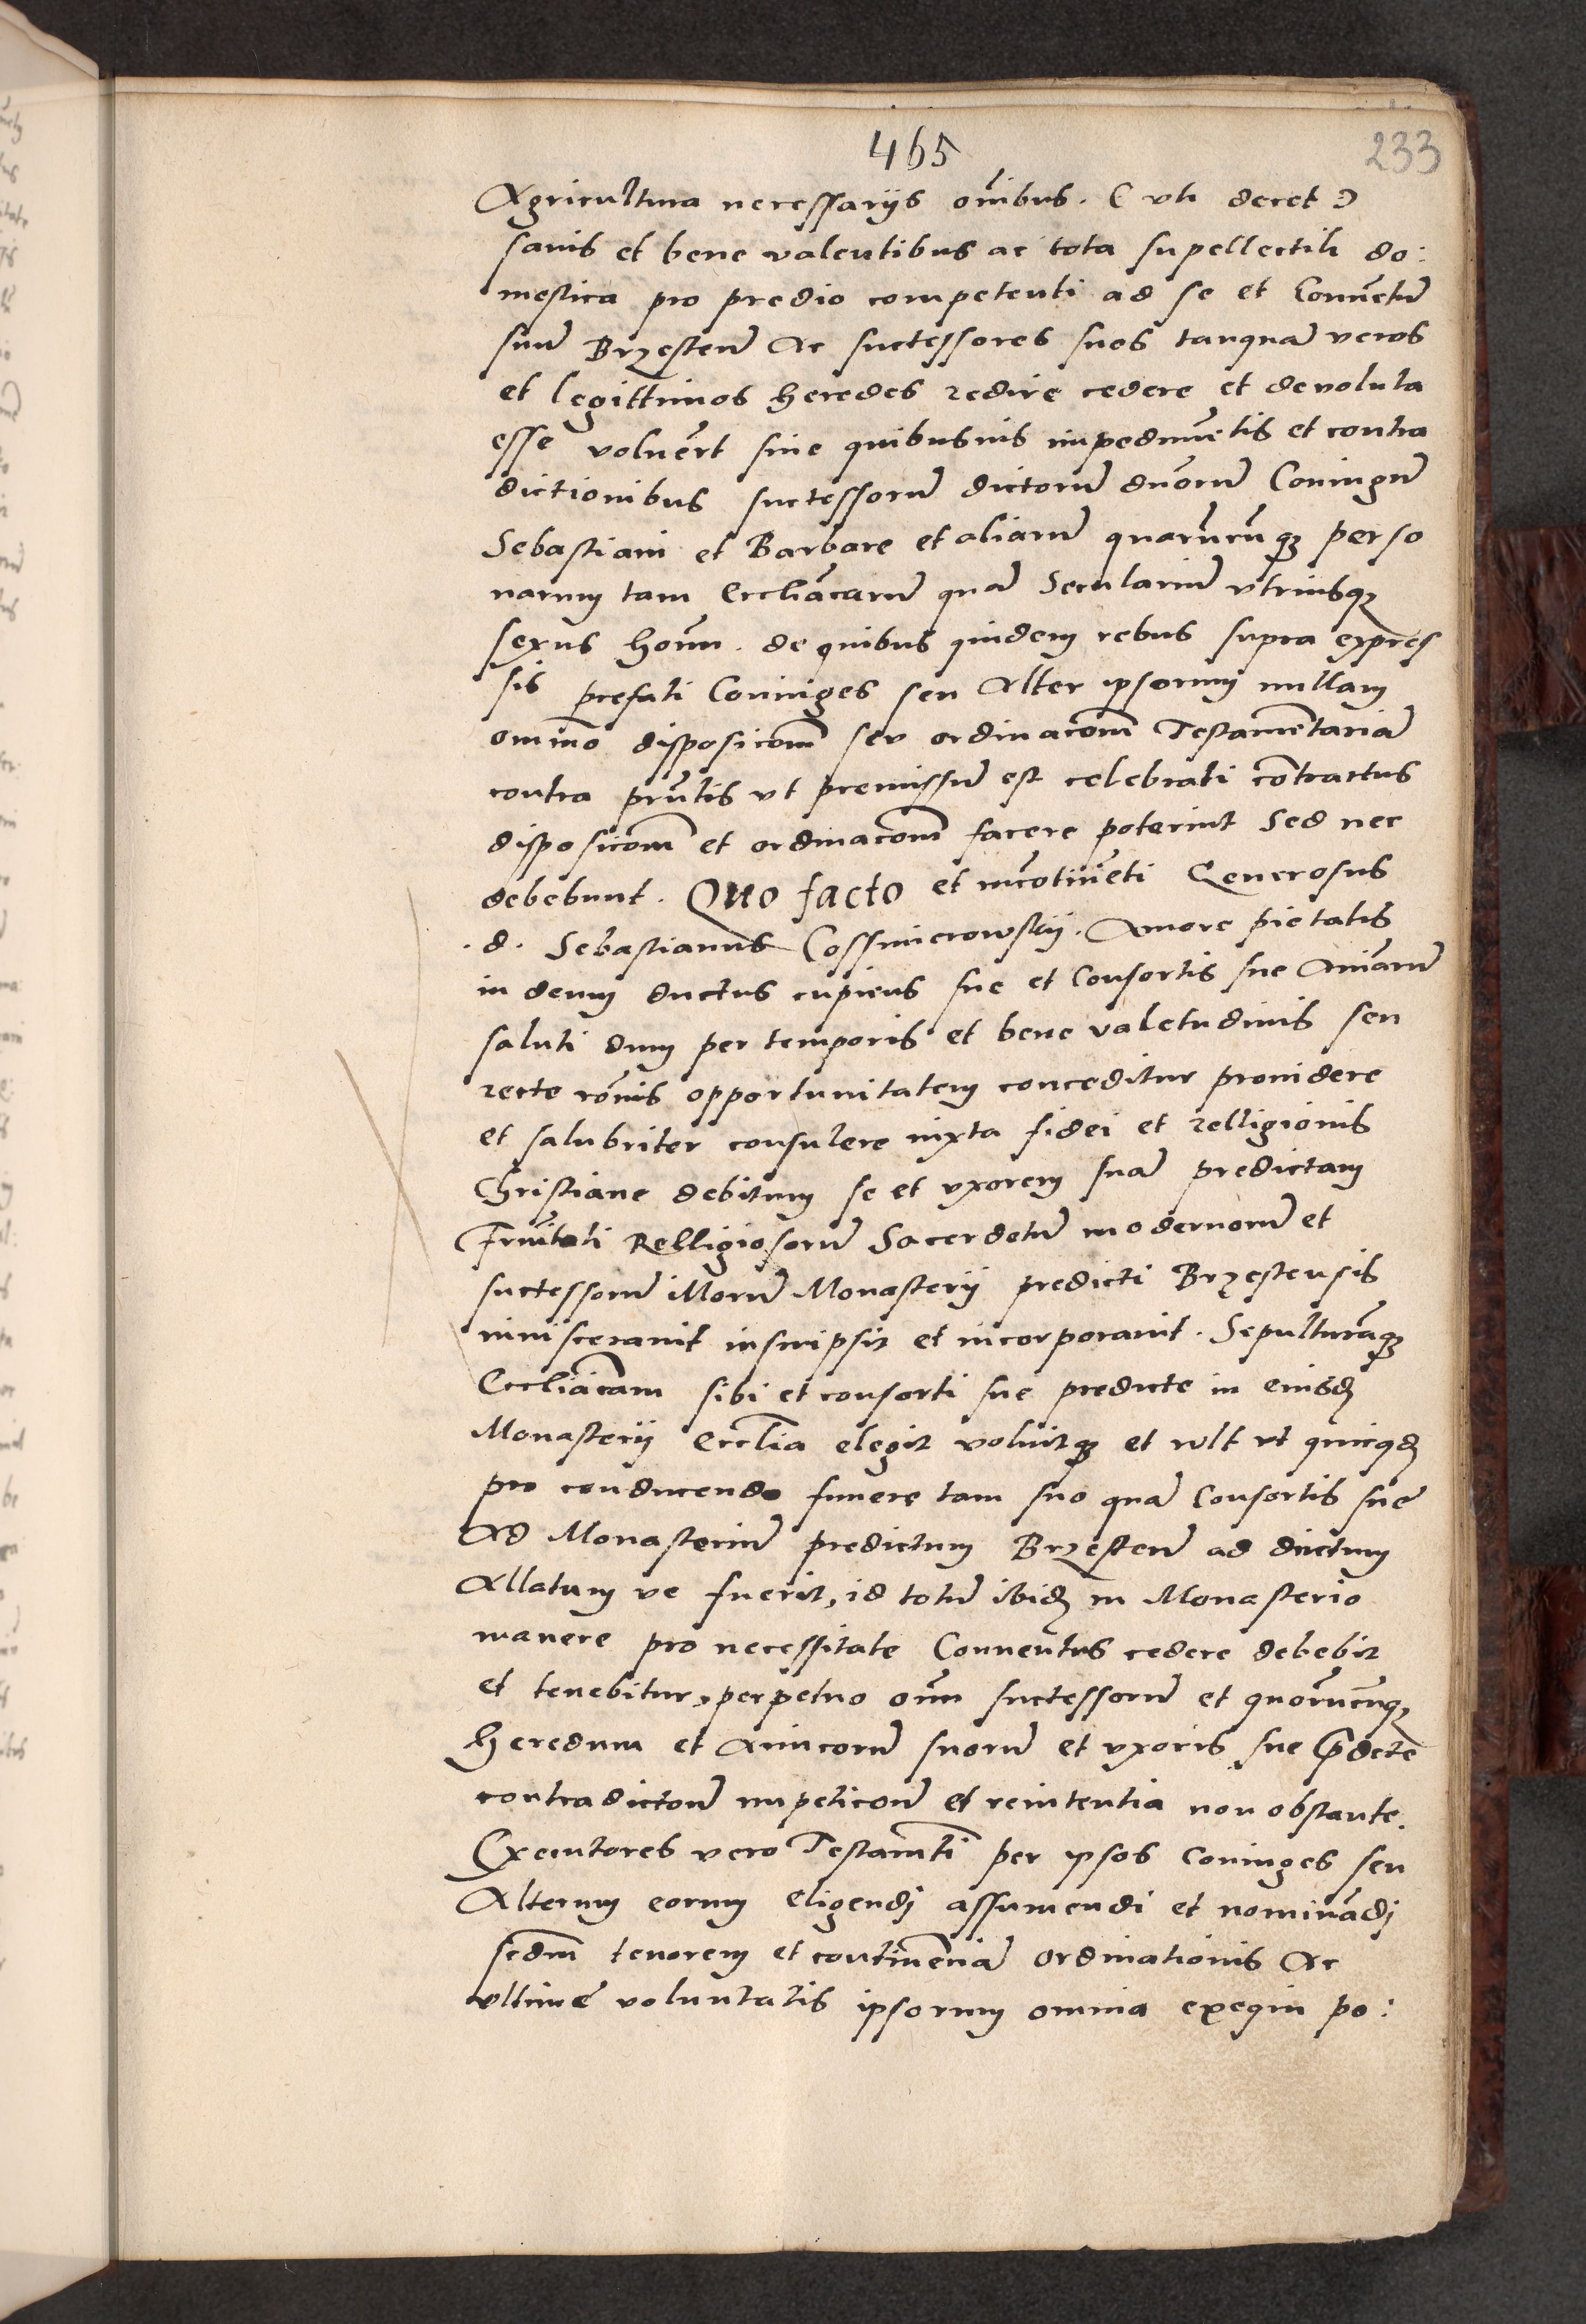 465
233
Agricultura necessariis om̄ibus. (vti decet)
sanis et bene valentibus ac tota supellectili do:
mestica pro predio competenti ad se et Conuētū
suū Brzestenū Ac successores suos tanquā veros
et legittimos heredes redire cedere et devoluta
esse voluer̄t sine quibusuis impedimētis et contra
dictionibus successorū dictorū duorū Coniugū
Sebastiani et Barbare et aliarū quarūcūqꝫ perso
narum tam Eccliācarū quā Seculariū vtriusqꝫ
sexus hoīm. de quibus quidem rebus supra expres
sis prefati Coniuges seu Alter ipsorum nullam
omīno disposicōm seu ordinacōm Testamentariā
contra pn̄tis vt premissū est celebrati cōtractus
disposicōm et ordinacōm facere poterint Sed nec
debebunt. Quo facto et incōtinēti Generosus
.d. Sebastianus Cossmierowskij. Amore pietatis
in deum ductus cupiens sue et Consortis sue Aīarū
saluti dum per temporis et bene valetudinis seu
recte rōnis opportunitatem conceditur prouidere
et salubriter consulere iuxta fidei et relligionis
Christiane debitum se et vxorem suā predictam
Frnītati Relligiosorū Sacerdotū modernorū et
successorū illorū Monasterij predicti Brzestensis
inuisceranit inscripsit et incorporauit. Sepulturāqꝫ
Eccliācam sibi et consorti sue predicte in eiusdē
Monasterij Ecclīa elegit voluitqꝫ et vlt vt quicqd̄
pro conducendo funere tam suo quā Consortis sue
Ad Monasteriū predictum Brzestenū ad ductum
Allatum ve fuerit, id totū ibidē in Monasterio
manere pro necessitate Conuentus cedere debebit
et tenebitur, perpetuo om̄i successorū et quorūcūqꝫ
heredum et Amicorū suorū et vxoris sue p̄dcte
contradictonē impeticonē et renitentia non obstante.
Executores vero Testamn̄ti per ipsos Coniuges seu
Alterum eorum eligendi assumendi et nominādi
scdm̄ tenorem et continēciā Ordinationis Ac
vltime voluntatis ipsorum omnia exequi po: